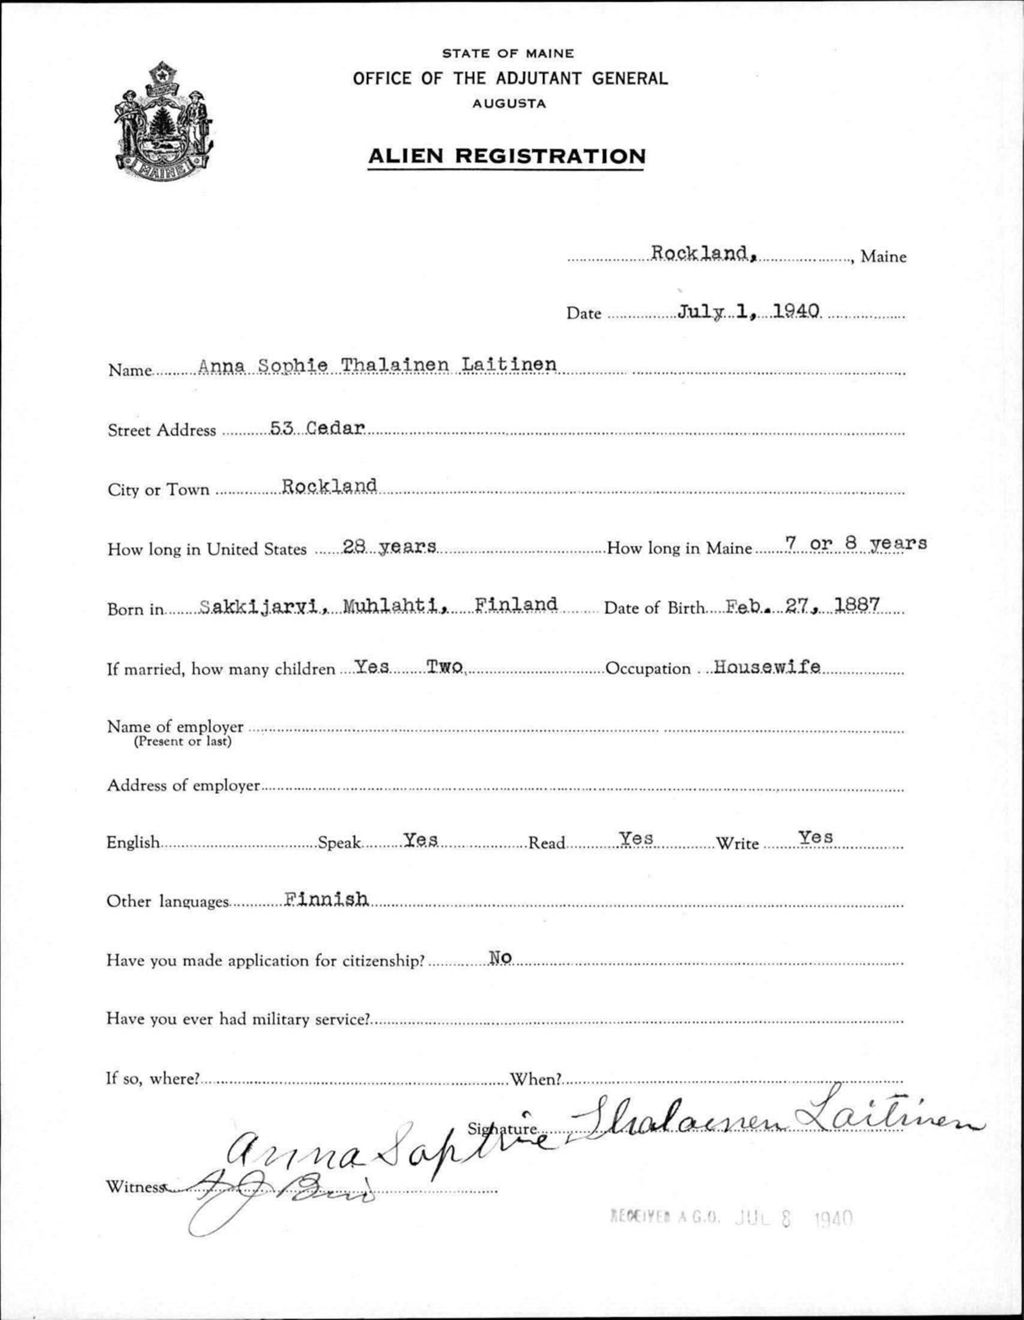 STATE OF MAINE
OFFICE OF THE ADJUTANT GENERAL
AUGUSTA
ALIEN REGISTRATION
MAINE
Rockland, , Maine
Date July 1, 1940
Name Anna Sophie Thalainen Laitinen
Street Address 53 Cedar
City or Town Rockland
How long in United States 28 years How long in Maine 7 or 8 years
Born in Sakkijarvi, Muhlahti, Finland Date of Birth Feb. 27, 1887
If married, how many children Yes Two Occupation Housewife
Name of employer
(Present or last)
Address of employer
English Speak Yes Read Yes Write Yes
Other languages Finnish
Have you made application for citizenship? No
Have you ever had military service?
If so, where? When?
Signature Anna Sophie Thalainen Laitinen
Witness
RECEIVED A.G.O. JUL 8 1940